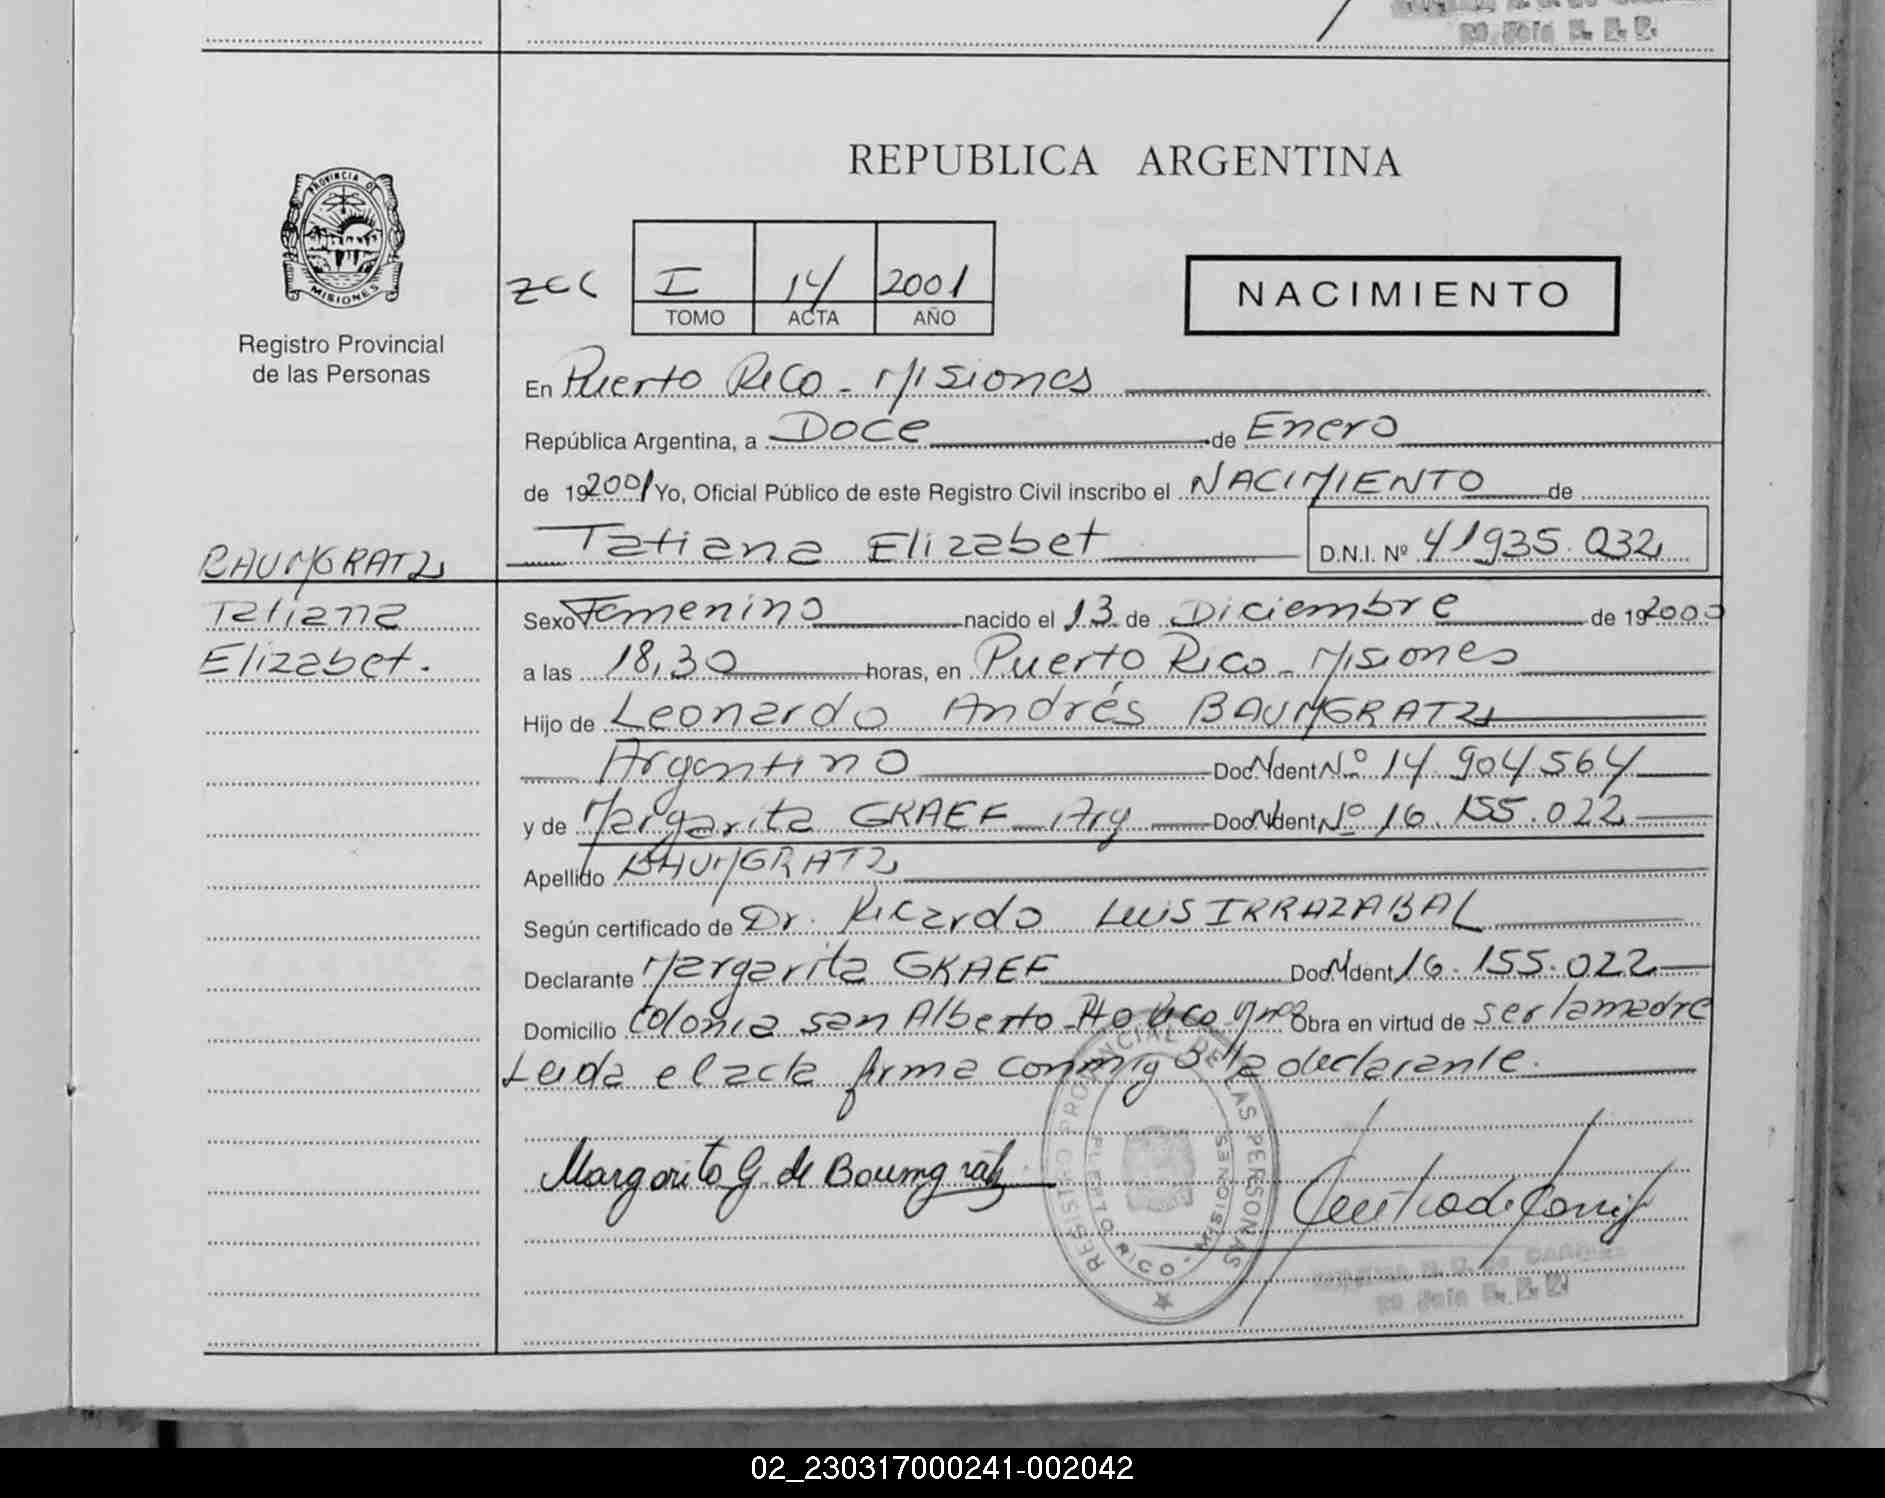 Ro. Pcia R. P. P.
REPUBLICA ARGENTINA
PROVINCIA DE
MISIONES
Registro Provincial
de las Personas
I 14 2001
TOMO ACTA AÑO
NACIMIENTO
En Puerto Rico - Misiones
República Argentina, a Doce de Enero
de 192001 Yo, Oficial Público de este Registro Civil inscribo el NACIMIENTO de
Tatiana Elizabet D.N.I. Nº 41935.032
BAUMGRATZ
Tatiana
Elizabet.
Sexo Femenino nacido el 13 de Diciembre de 192000
a las 18,30 horas, en Puerto Rico - Misiones
Hijo de Leonardo Andrés BAUMGRATZ
Argentino Doc. Ident Nº 14.904564
y de Margarita GRAEF - Arg Doc. Ident Nº 16.155.022
Apellido BAUMGRATZ
Según certificado de Dr. Ricardo Luis IRRAZABAL
Declarante Margarita GRAEF Doc. Ident 16.155.022
Domicilio Colonia San Alberto - Pto Rico Mnes Obra en virtud de ser la madre
Leida el acta firma conmigo la declarante.
Margarita G. de Baumgratz
REGISTRO PROVINCIAL DE LAS PERSONAS
PUERTO RICO - MISIONES
02_230317000241-002042